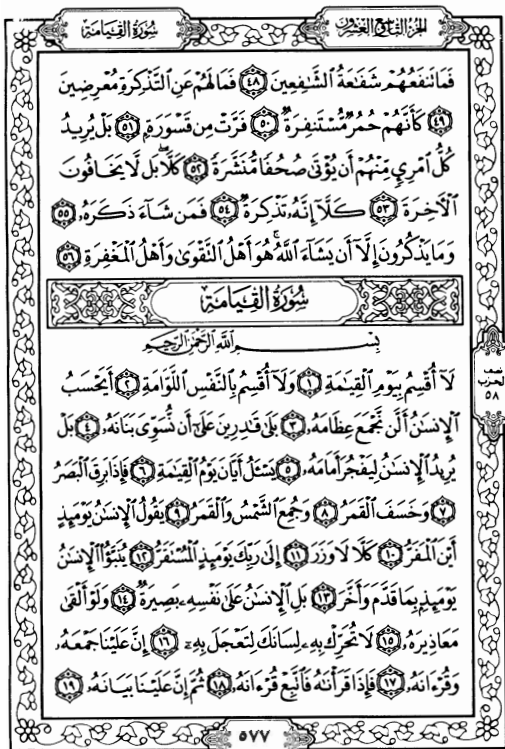 الجزء التاسع والعشرون
سُورَةُ القِيَامَة
فَمَا تَنفَعُهُمْ شَفَاعَةُ الشَّافِعِينَ ٤٨ فَمَا لَهُمْ عَنِ التَّذْكِرَةِ مُعْرِضِينَ
٤٩ كَأَنَّهُمْ حُمُرٌ مُّسْتَنفِرَةٌ ٥٠ فَرَّتْ مِن قَسْوَرَةٍ ٥١ بَلْ يُرِيدُ
كُلُّ امْرِئٍ مِّنْهُمْ أَن يُؤْتَىٰ صُحُفًا مُّنَشَّرَةً ٥٢ كَلَّا بَل لَّا يَخَافُونَ
الْآخِرَةَ ٥٣ كَلَّا إِنَّهُ تَذْكِرَةٌ ٥٤ فَمَن شَاءَ ذَكَرَهُ ٥٥
وَمَا يَذْكُرُونَ إِلَّا أَن يَشَاءَ اللَّهُ هُوَ أَهْلُ التَّقْوَىٰ وَأَهْلُ الْمَغْفِرَةِ ٥٦
سُورَةُ القِيَامَة
بِسْمِ اللَّهِ الرَّحْمَٰنِ الرَّحِيمِ
لَا أُقْسِمُ بِيَوْمِ الْقِيَٰمَةِ ١ وَلَا أُقْسِمُ بِالنَّفْسِ اللَّوَّامَةِ ٢ أَيَحْسَبُ
الْإِنسَٰنُ أَلَّن نَّجْمَعَ عِظَامَهُ ٣ بَلَىٰ قَٰدِرِينَ عَلَىٰ أَن نُّسَوِّيَ بَنَانَهُ ٤ بَلْ
يُرِيدُ الْإِنسَٰنُ لِيَفْجُرَ أَمَامَهُ ٥ يَسْـَٔلُ أَيَّانَ يَوْمُ الْقِيَٰمَةِ ٦ فَإِذَا بَرِقَ الْبَصَرُ
٧ وَخَسَفَ الْقَمَرُ ٨ وَجُمِعَ الشَّمْسُ وَالْقَمَرُ ٩ يَقُولُ الْإِنسَٰنُ يَوْمَئِذٍ
أَيْنَ الْمَفَرُّ ١٠ كَلَّا لَا وَزَرَ ١١ إِلَىٰ رَبِّكَ يَوْمَئِذٍ الْمُسْتَقَرُّ ١٢ يُنَبَّؤُا الْإِنسَٰنُ
يَوْمَئِذٍ بِمَا قَدَّمَ وَأَخَّرَ ١٣ بَلِ الْإِنسَٰنُ عَلَىٰ نَفْسِهِ بَصِيرَةٌ ١٤ وَلَوْ أَلْقَىٰ
مَعَاذِيرَهُ ١٥ لَا تُحَرِّكْ بِهِ لِسَانَكَ لِتَعْجَلَ بِهِ ١٦ إِنَّ عَلَيْنَا جَمْعَهُ
وَقُرْءَانَهُ ١٧ فَإِذَا قَرَأْنَٰهُ فَاتَّبِعْ قُرْءَانَهُ ١٨ ثُمَّ إِنَّ عَلَيْنَا بَيَانَهُ ١٩
نصف
الحزب
٥٨
٥٧٧